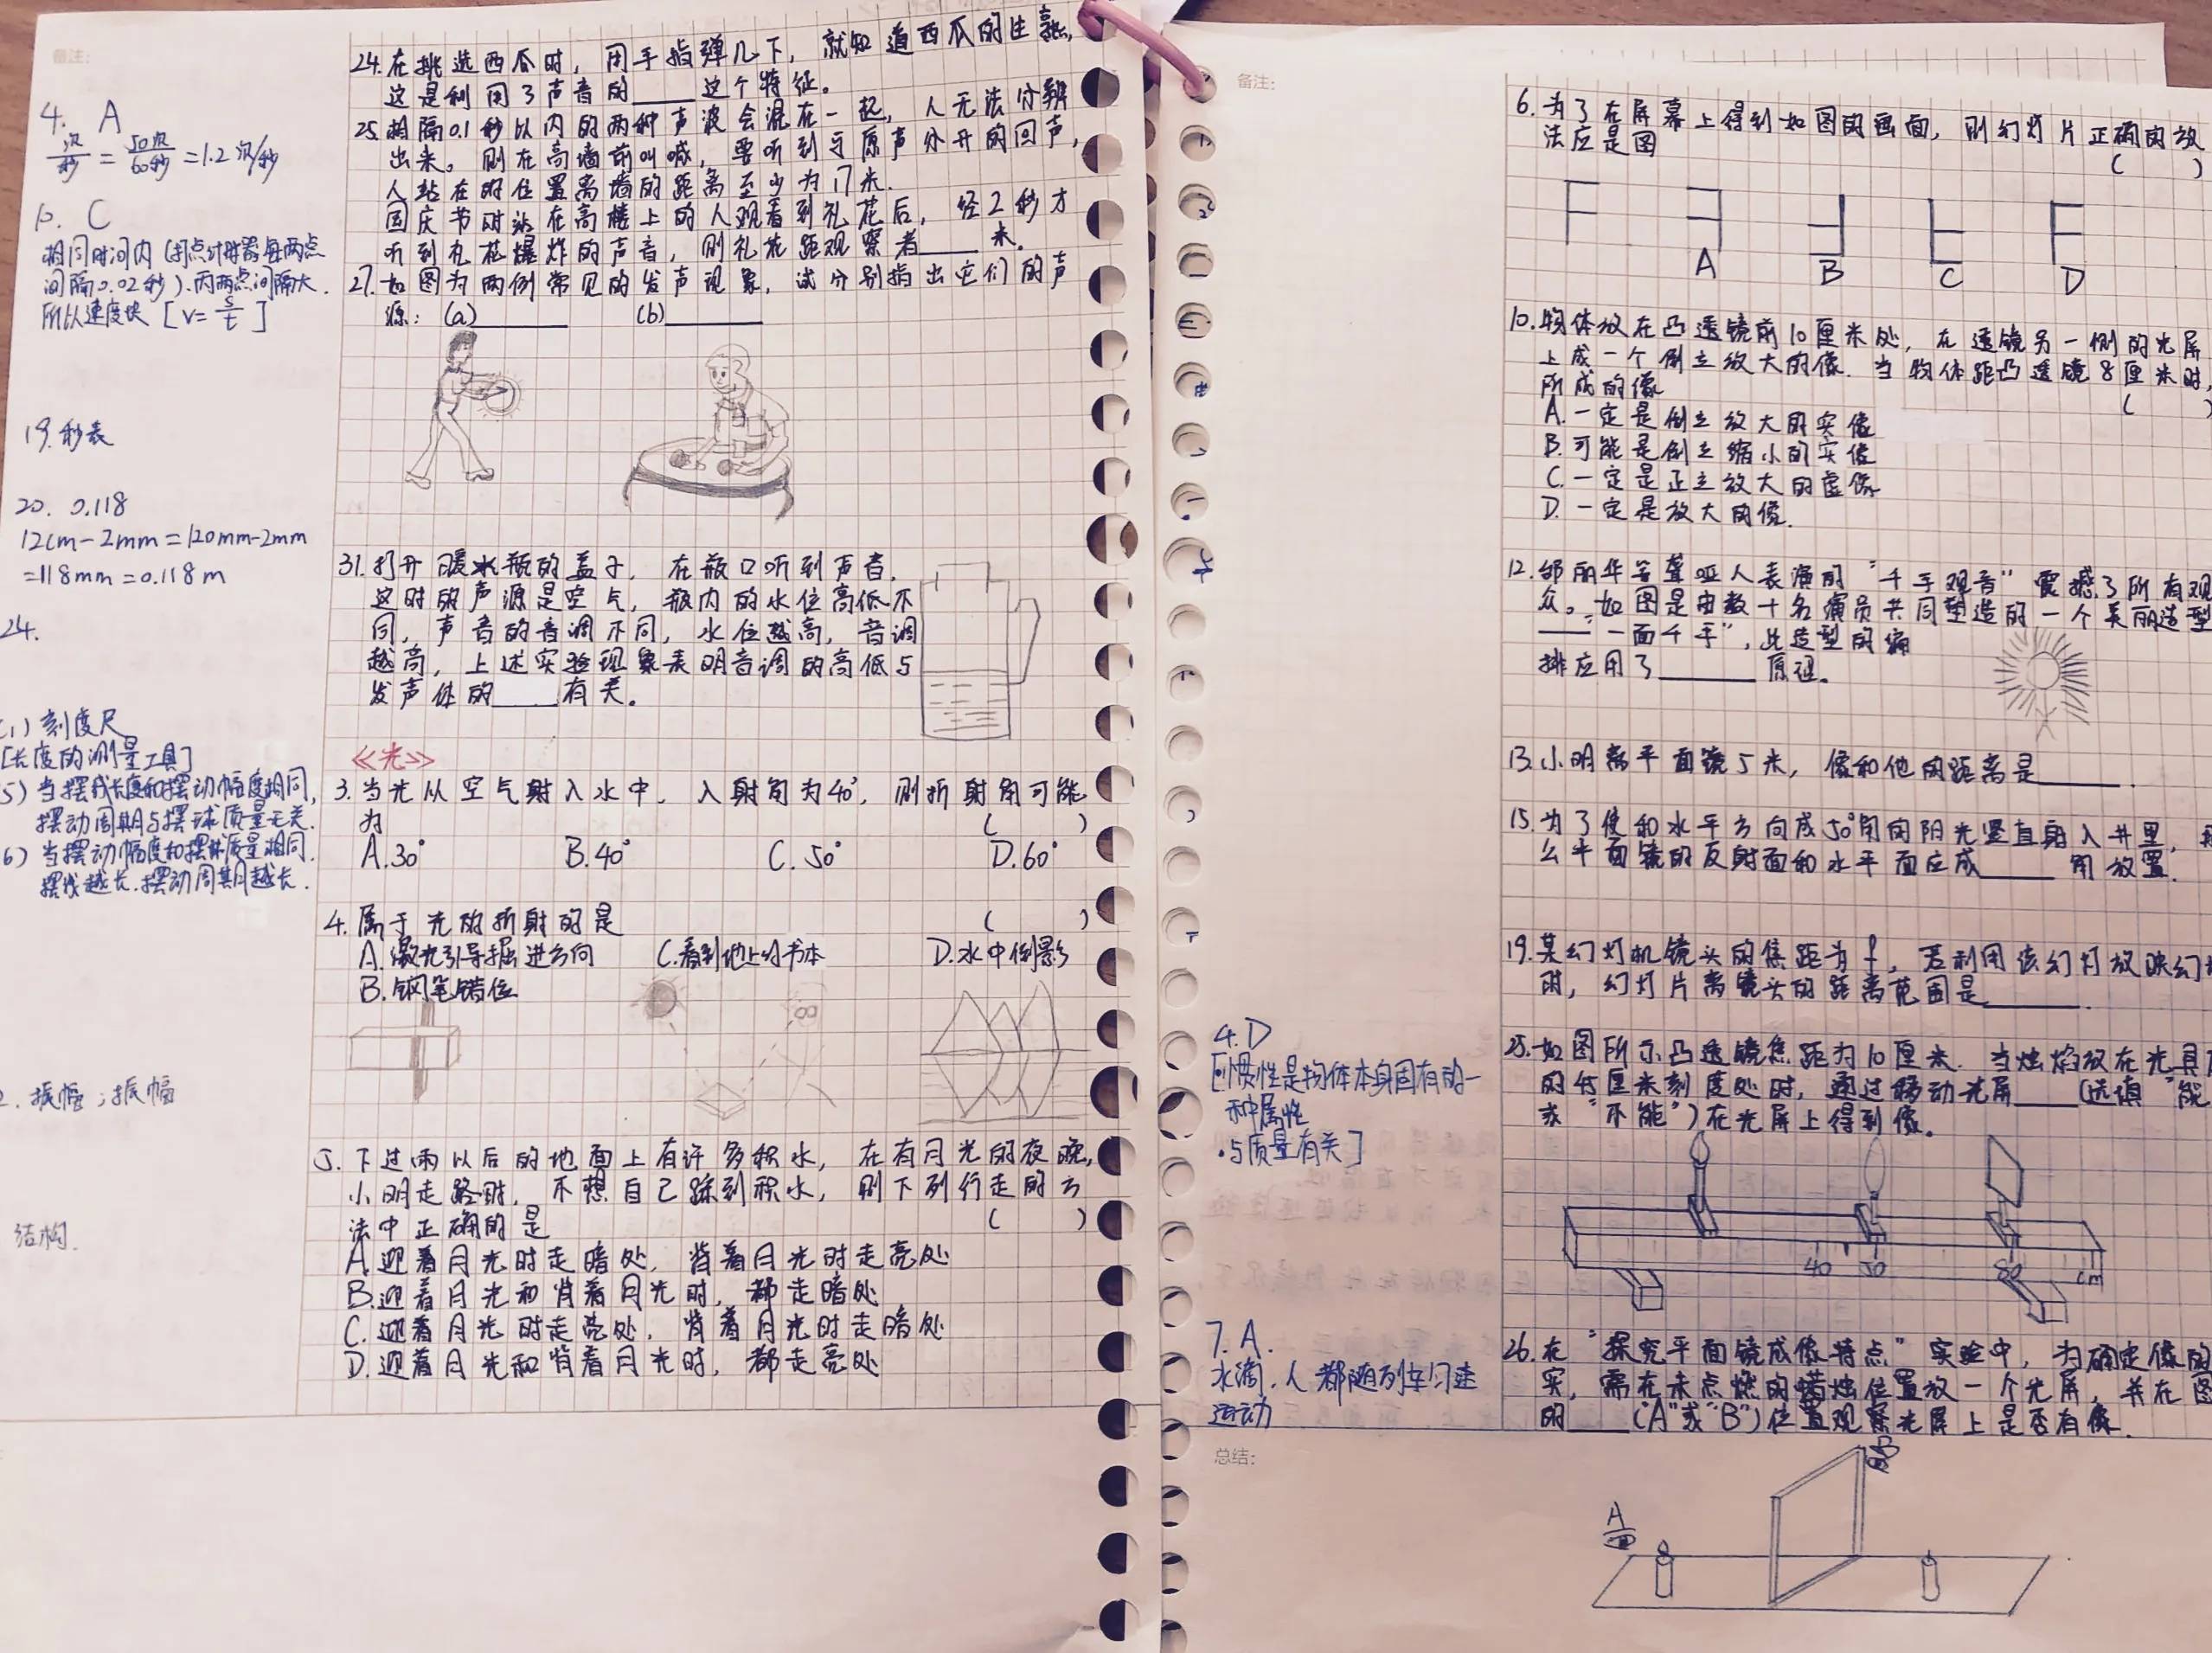 备注:
4. A
次/秒 = 50次/60秒 = 1.2 次/秒
10. C
相同时间内(打点计时器每两点
间隔0.02秒).丙两点间隔大.
所以速度快 [v= s/t ]
19.秒表
20. 0.118
12cm-2mm=120mm-2mm
=118mm=0.118m
24.
(1) 刻度尺
[长度的测量工具]
5) 当摆线长度和摆动幅度相同,
摆动周期与摆球质量无关.
6) 当摆动幅度和摆球质量相同.
摆线越长.摆动周期越长.
2. 振幅;振幅
结构.
24.在挑选西瓜时,用手指弹几下,就知道西瓜的生熟,
这是利用了声音的____这个特征。
25.相隔0.1秒以内的两种声波会混在一起,人无法分辨
出来。则在高墙前叫喊,要听到与原声分开的回声,
人站在的位置离墙的距离至少为17米.
国庆节时站在高楼上的人观看到礼花后,经2秒才
听到礼花爆炸的声音,则礼花距观察者____米.
27.如图为两例常见的发声现象,试分别指出它们的声
源:(a)______ (b)______
31.打开暖水瓶的盖子,在瓶口听到声音.
这时的声源是空气,瓶内的水位高低不
同,声音的音调不同,水位越高,音调
越高,上述实验现象表明音调的高低与
发声体的____有关。
≪光≫
3.当光从空气射入水中,入射角为40°,则折射角可能
为 ( )
A.30° B.40° C.50° D.60°
4.属于光的折射的是 ( )
A.激光引导掘进方向 C.看到地上的书本 D.水中倒影
B.钢笔错位
5.下过雨以后的地面上有许多积水,在有月光的夜晚,
小明走路时,不想自己踩到积水,则下列行走的方
法中正确的是 ( )
A.迎着月光时走暗处,背着月光时走亮处
B.迎着月光和背着月光时,都走暗处
C.迎着月光时走亮处,背着月光时走暗处
D.迎着月光和背着月光时,都走亮处
备注:
4.D
[惯性是物体本身固有的一
种属性
·与质量有关]
7.A.
水滴.人都随列车匀速
运动
总结:
6.为了在屏幕上得到如图的画面,则幻灯片正确的放
法应是图 ( )
A B C D
10.物体放在凸透镜前10厘米处,在透镜另一侧的光屏
上成一个倒立放大的像.当物体距凸透镜8厘米时,
所成的像 ( )
A.一定是倒立放大的实像
B.可能是倒立缩小的实像
C.一定是正立放大的虚像
D.一定是放大的像.
12.邰丽华等聋哑人表演的"千手观音"震撼了所有观
众。如图是由数十名演员共同塑造的一个美丽造型
——"一面千手",此造型的编
排应用了______原理。
13.小明离平面镜5米,像和他的距离是______.
15.为了使和水平方向成50°角的阳光竖直射入井里,
么平面镜的反射面和水平面应成____角放置.
19.某幻灯机镜头的焦距为f,若利用该幻灯放映幻
时,幻灯片离镜头的距离范围是______.
25.如图所示凸透镜焦距为10厘米.当烛焰放在光具
的45厘米刻度处时,通过移动光屏____(选填"能
或"不能")在光屏上得到像。
40 50 80 cm
26.在"探究平面镜成像特点"实验中,为确定像的
实,需在未点燃的蜡烛位置放一个光屏,并在图
的____("A"或"B")位置观察光屏上是否有像.
B
A